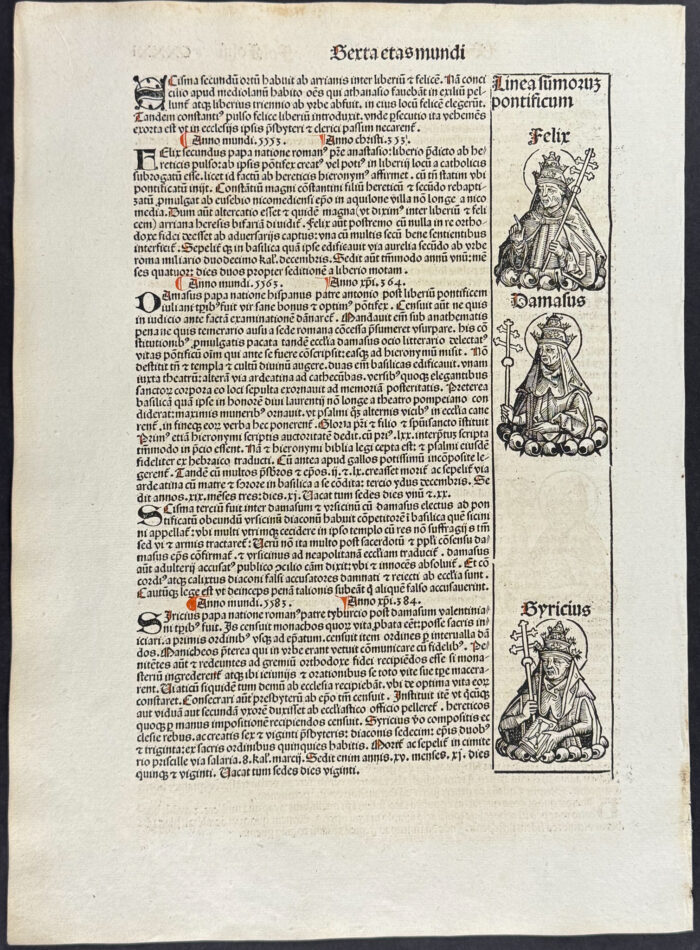 Sexta etas mundi
Linea sum̄oruꝫ
pontificum
Felix
Damasus
Syricius
SCisma secundū ortū habuit ab arrianis inter liberiū ⁊ felicē. Nā conci
cilio apud mediolanū habito oēs qui athanasio fauebāt in exiliū pel
lunt̄ atqꝫ liberius triennio ab vrbe abfuit. in eius locū felicē elegerūt.
Tandem constantiꝰ pulso felice liberiū introduxit. vnde ꝑsecutio ita vehemēs
exorta est vt in ecclesijs ipsis p̄sbyteri ⁊ clerici passim necarent̄.
Anno mundi. 5553. Anno christi. 353.
FElix secundus papa natione romanꝰ p̄re anastasio: liberio p̄dicto ab he/
reticis pulso: ab ipsis pōtifex creatꝰ vel potiꝰ in liberij locū a catholicis
subrogatū esse. licet id factū ab hereticis hieronymꝰ affirmet. cū tn̄ statim vbi
pontificatū inijt. Constātiū magni cōstantini filiū hereticū ⁊ secūdo rebapti/
zatū ꝓmulgat ab eusebio nicomediensi ep̄o in aquilone villa nō longe a nico
media. Dum aūt altercatio esset ⁊ quidē magna (vt diximꝰ inter liberiū ⁊ feli
cem) arriana heresis bifariā diuidit̄. Felix aūt postremo cū nulla in re ortho/
doxe fidei decesset ab aduersarijs captus: vna cū multis secū bene sentientibus
interficit̄. Sepelit̄ qꝫ in basilica quā ipse edificauit via aurelia secūdo ab vrbe
roma miliario duodecimo kal̄. decembris. Sedit aūt tm̄modo annū vnū: mē
ses quatuor: dies duos propter seditionē a liberio motam.
Anno mundi. 5563. Anno xp̄i. 364.
DAmasus papa natione hispanus patre antonio post liberiū pontificem
iuliani tp̄ibꝰ fuit vir sane bonus ⁊ optimꝰ pōtifex. Censuit aūt ne quis
in iudicio ante factā examinationē dānaret̄. Mandauit em̄ sub anathematis
pena ne quis temerario ausu a sede romana cōcessa p̄sumeret vsurpare. his cō
stitutionibꝰ ꝓmulgatis pacata tandē eccl̄ia damasus ocio litterario delectatꝰ
vitas pōtificū oīm qui ante se fuere cōscripsit: easqꝫ ad hieronymū misit. Nō
destitit tn̄ ⁊ templa ⁊ cultū diuinū augere. duas em̄ basilicas edificauit. vnam
iuxta theatrū: alterā via ardeatina ad cathecūbas. versibꝰ quoqꝫ elegantibus
sanctoꝝ corpora eo loci sepulta exornauit ad memoriā posteritatis. Preterea
basilicā quā ipse in honorē diui laurentij nō longe a theatro pompeiano con
diderat: maximis muneribꝰ ornauit. vt psalmi qꝫ alternis vicibꝰ in eccl̄ia cane
rent̄. in fineqꝫ eoꝝ verba hec ponerent̄. Gloria pr̄i ⁊ filio ⁊ sp̄uisancto istituit
Primꝰ etiā hieronymi scriptis auctoritatē dedit. cū priꝰ .lxx. interp̄tus scripta
tm̄modo in p̄cio essent. Nā ⁊ hieronymi biblia legi cepta est: ⁊ psalmi eiusdē
fideliter ex hebraico traducti. Cū antea apud gallos potissimū incōposite le/
gerent̄. Tandē cū multos p̄sbros ⁊ ep̄os .ij. ⁊ lx. creasset morit̄ ac sepelit̄ via
ardeatina cū matre ⁊ sorore in basilica a se cōdita: tercio ydus decembris. Se
dit annos .xix. mēses tres: dies .xj. Uacat tum sedes dies vnū ⁊ xx.
SCisma terciū fuit inter damasum ⁊ vrsicinū cū damasus electus ad pon
tificatū obeundū vrsicinū diaconū habuit cōpetitorē ī basilica quē sicini
ni appellant̄: vbi multi vtrimqꝫ cecidere in ipso templo cū res nō suffragijs tm̄
sed vi ⁊ armis tractaret̄: Uerū nō ita multo post sacerdotū ⁊ pp̄li cōsensu da
masus ep̄s cōfirmat̄. ⁊ vrsicinus ad neapolitanā eccl̄iam traducit̄. damasus
aūt adulterij accusatꝰ publico ꝓcilio cām dixit: vbi ⁊ innocēs absoluit̄. Et cō
cordiꝰ atqꝫ calixtus diaconi falsi accusatores damnati ⁊ reiecti ab eccl̄ia sunt.
Cautūqꝫ lege est vt deinceps penā talionis subeāt q̄ aliquē falso accusauerint.
Anno mundi. 5583. Anno xp̄i. 384.
SIricius papa natione romanꝰ patre tyburcio post damasum valentinia/
ni tp̄ibꝰ fuit. Is censuit monachos quoꝝ vita ꝓbata eēt: posse sacris in
iciari. a primis ordinibꝰ vsqꝫ ad ep̄atum. censuit item ordines p̄ interualla dā
dos. Manicheos p̄terea qui in vrbe erant vetuit cōmunicare cū fidelibꝰ. Pe/
nitētes aūt ⁊ redeuntes ad gremiū orthodoxe fidei recipiēdos esse si mona/
steriū ingrederent̄ atqꝫ ibi ieiunijs ⁊ orationibus se toto vite sue tꝑe macera/
rent. Uiaticū siquidē tum demū ab ecclesia recipiebāt. vbi de optima vita eoꝝ
constaret. Consecrari aūt presbyterū ab ep̄o tm̄ censuit. Instituit itē vt q̄cūqꝫ
aut viduā aut secundā vxorē duxisset ab eccl̄iastico officio pelleret̄. hereticos
quoqꝫ p̄ manus impositionē recipiendos censuit. Syricius v̄o compositis ec
clesie rebus. ac creatis sex ⁊ viginti p̄sbyteris: diaconis sedecim: ep̄is duobꝰ
⁊ triginta: ex sacris ordinibus quinquies habitis. Morit̄ ac sepelit̄ in cimite
rio priscille via salaria .8. kal̄. marcij. Sedit enim annis .xv. menses .xj. dies
quinqꝫ ⁊ viginti. Uacat tum sedes dies viginti.